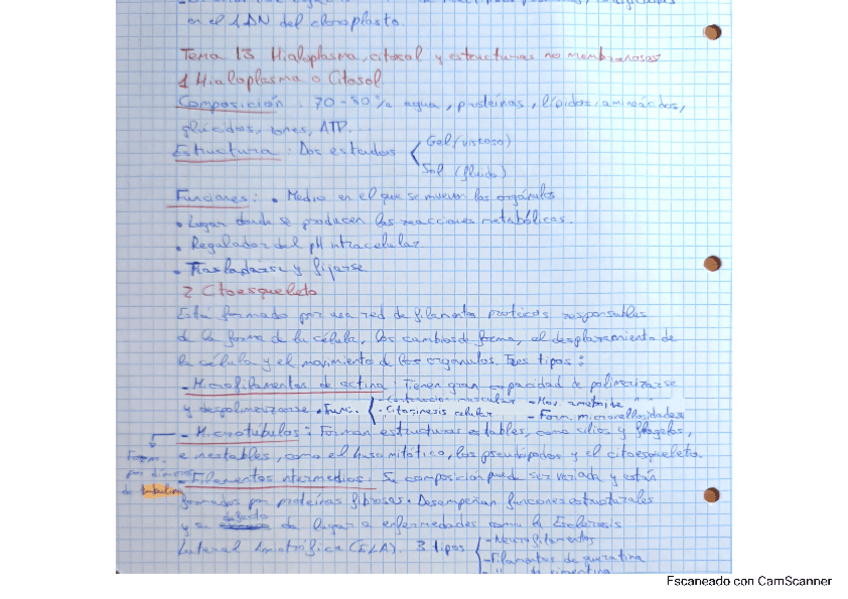 en el ADN del cloroplasto.
Tema 13 Hialoplasma, citosol y estructuras no membranosas
1 Hialoplasma o Citosol
Composición: 70-80% agua, proteínas, lípidos, aminoácidos,
glúcidos, iones, ATP...
Estructura: Dos estados Gel (viscoso)
Sol (fluido)
Funciones: • Medio en el que se mueven los orgánulos
• Lugar donde se producen las reacciones metabólicas.
• Regulador del pH intracelular.
• Trasladarse y fijarse
2 Citoesqueleto
Está formado por una red de filamentos protéicos responsables
de la forma de la célula, los cambios de forma, el desplazamiento de
la célula y el movimiento de los orgánulos. Tres tipos:
- Microfilamentos de actina: Tienen gran capacidad de polimerizarse
y despolimerizarse • Func. - Contracción muscular - Mov. ameboide
- Citocinesis celular - Form. microvellosidades
- Microtúbulos: Forman estructuras estables, como cilios y flagelos,
e inestables, como el huso mitótico, los pseudópodos y el citoesqueleto.
Form. por dímeros de tubulina
- Filamentos intermedios: Su composición puede ser variada y están
formados por proteínas fibrosas. Desempeñan funciones estructurales
y su defecto da lugar a enfermedades como la Esclerosis
Lateral Amiotrófica (ELA). 3 tipos - Neurofilamentos
- Filamentos de queratina
- " de vimentina
Escaneado con CamScanner